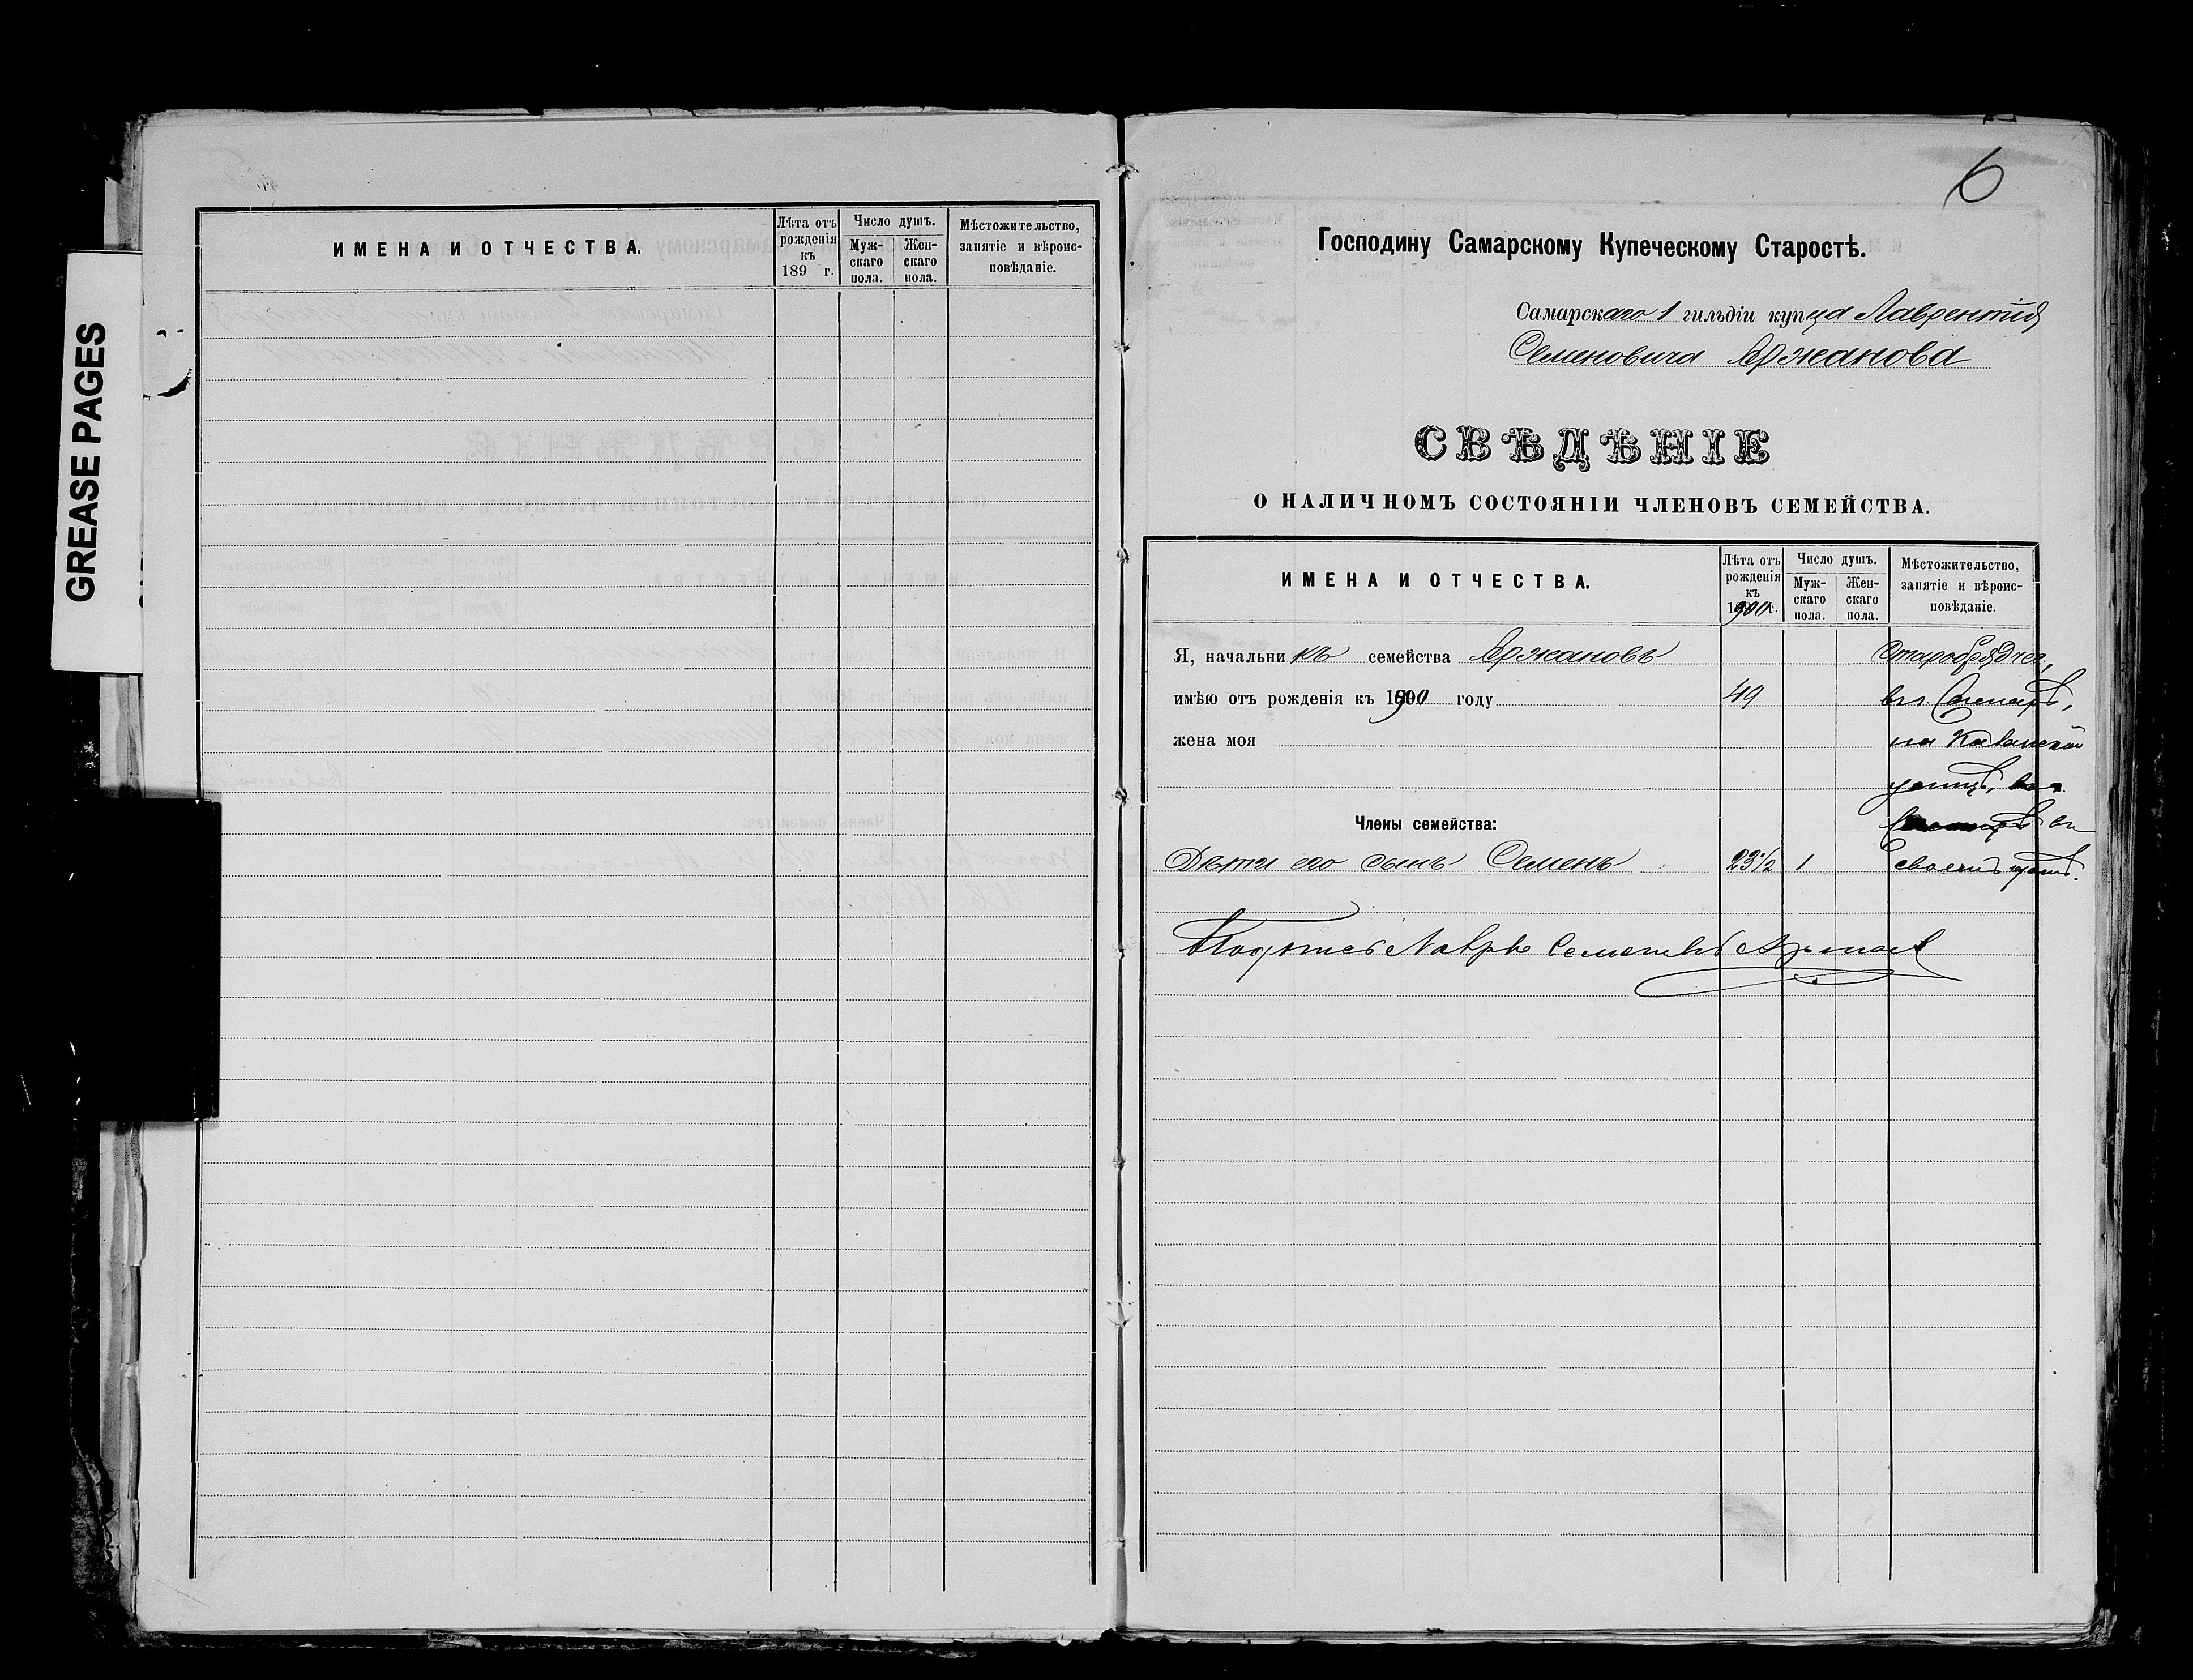 GREASE PAGES
ИМЕНА И ОТЧЕСТВА.
Лѣта отъ рожденія къ 189 г.
Число душъ.
Мужскаго пола.
Женскаго пола.
Мѣстожительство, занятіе и вѣроисповѣданіе.
6
Господину Самарскому Купеческому Старостѣ.
Самарскаго 1 гильдіи купца Лаврентія
Семеновича Аржанова
СВѢДѢНІЕ
О НАЛИЧНОМЪ СОСТОЯНІИ ЧЛЕНОВЪ СЕМЕЙСТВА.
ИМЕНА И ОТЧЕСТВА.
Лѣта отъ
рожденія
къ
1900 г.
Число душъ.
Муж-
скаго
пола.
Жен-
скаго
пола.
Мѣстожительство,
занятіе и вѣроис-
повѣданіе.
Я, начальникъ семейства Аржановъ старобрядчес,
имѣю отъ рожденія къ 1900 году 49 въ Самарѣ,
жена моя на Казанской
улицѣ,
Члены семейства: въ
Дѣти его сынъ Семенъ 23½ 1 своемъ домѣ.
Семеновъ